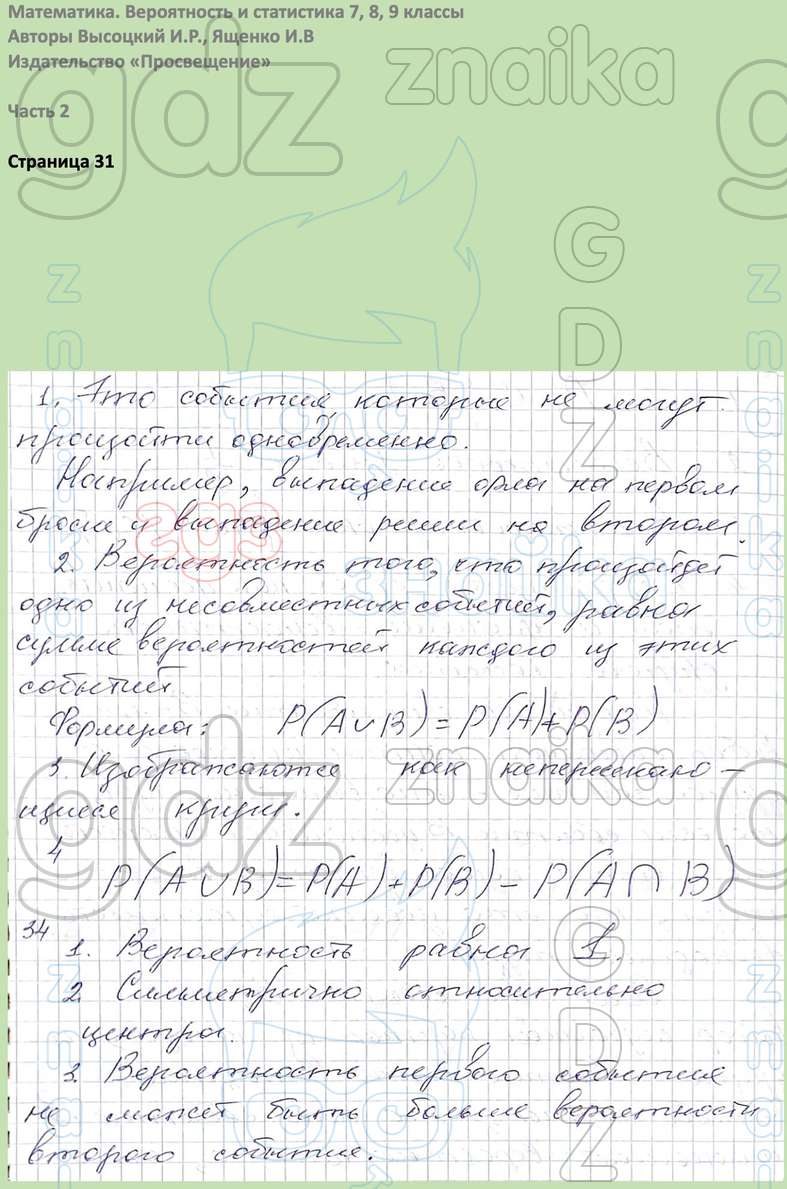 Математика. Вероятность и статистика 7, 8, 9 классы
Авторы Высоцкий И.Р., Ященко И.В
Издательство «Просвещение»
Часть 2
Страница 31
gdz znaika gdz
znaika
GDZ
znaika
1. Это события, которые не могут
произойти одновременно.
Например, выпадение орла на первом
броске и выпадение решки на втором.
2. Вероятность того, что произойдет
одно из несовместных событий, равна
сумме вероятностей каждого из этих
событий
Формула: P(A∪B)=P(A)+P(B)
3. Изображаются как непересекаю-
щиеся круги.
4
P(A∪B)=P(A)+P(B)-P(A∩B)
34
1. Вероятность равна 1.
2. Симметрично относительно
центра.
3. Вероятность первого события
не может быть больше вероятности
второго события.
gdz znaika gdz
GDZ